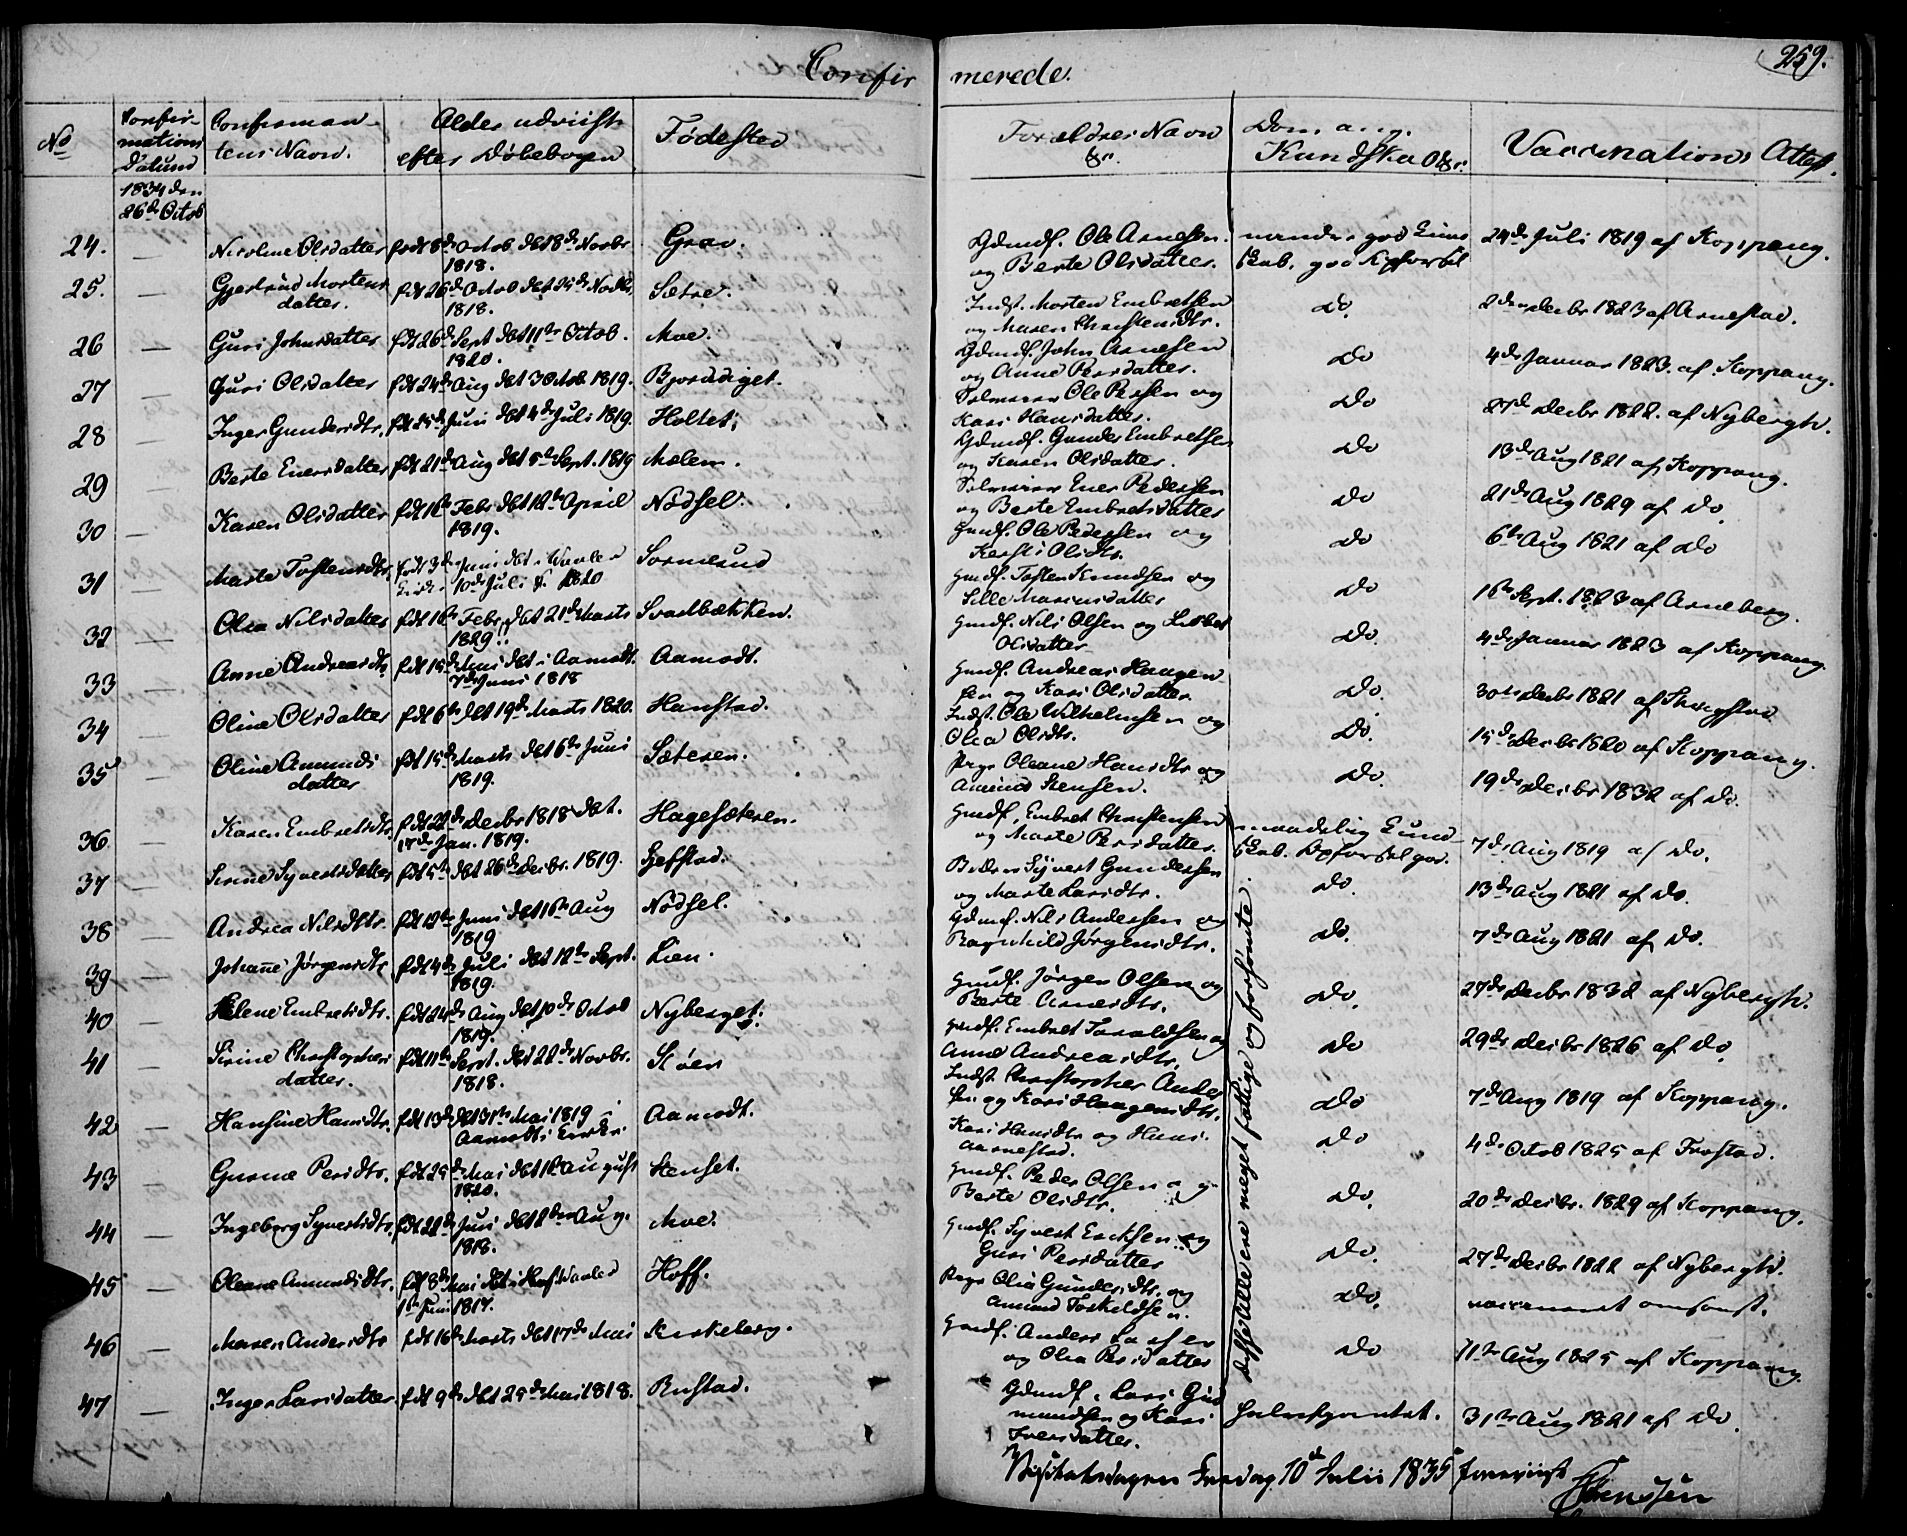 Confirmerede.
259.
No
Confirmations Datum
Confirmantens Navn.
Alder udviist efter Døbebogen
Fødested
Forældres Navn &r.
Dom ang. Kundskab &r.
Vaccinations Attest.
1834 den 26de Octob
24. — Nicoline Olsdatter født 8de Octob døbt 8de Novbr 1818. Grav. Gdmd. Ole Arnesen og Berte Olsdatter. god Kundskab. god Opførsel 24de Juli 1819 af Koppang.
25. — Gjertrud Mortensdatter. fdt 26de Octob døbt 25de Novbr 1818. Sætre. Indst. Morten Embretsen og Maren Christensdtr. Do. 2den Decbr 1823 af Arnestad.
26 — Guri Johnsdatter fdt 26de Sept døbt 11te Octob. 1820. Moe. Gdmd. John Arnesen og Anne Persdatter. Do 4de Januar 1823. af Koppang.
27 — Guri Olsdatter fdt 24de Aug døbt 3 Octob 1819. Ole Persen og Kari Hansdatter. Do 27de Decbr 1822. af Nybergh.
28 — Inger Gundersdtr. fdt 25de Juni døbt 4de Juli 1819. Holtet. Gdmd. Gunder Embretsen og Karen Olsdatter. Do 13de Aug 1821 af Koppang.
29 — Berte Enersdatter fdt 21de Aug døbt 5te Sept. 1819 Mælem. Ener Pedersen og Berte Embretsdatter Do 21de Aug 1829 af Do.
30 — Karen Olsdatter fdt 16te Febr døbt 12te April 1819. Nødsel. Gmd. Ole Pedersen og Kersti Olsdtr. Do 6te Aug 1821 af Do
31 — Marte Tostensdtr. født 3de Juni døbt i Waaler Kirke 10de Juli 1820 Sormerud Gmd. Tosten Knudsen og Sille Mariusdatter Do 16te Sept. 1823 af Arneberg.
32 — Olea Nilsdatter fdt 16te Febr døbt 21de Marts 1829. Svartbækken. Gmd. Nils Olsen og Lisbet Olsdatter Do. 4de Januar 1823 af Koppang.
33 — Anne Andreasdtr fdt 15de Mai døbt i Aamodt. 7de Juni 1818 Aamodt. Gmd. Andreas Haagensen og Kari Olsdatter Do. 30te Decbr 1821 af
34 — Oline Olsdatter fdt 6te døbt 19de Marts 1820. Hanstad. Indst. Ole Wilhelmsen og Olea Olsdtr. Do. 15de Decbr 1820 af Koppang.
35 — Oline Amundsdatter fdt 15de Marts døbt 6te Juni 1819. Sæteren. Pige Oleane Hansdtr og Amund Stensen. Do. 19de Decbr 1832 af Do.
36. — Karen Embretsdtr. fdt 22de Decbr 1818 døbt. 17de Jan. 1819. Hagesæteren. Gmd. Embret Christensen og Marte Persdatter. maadelig Kundskab. Opførsel god. 7de Aug 1819 af Do.
37 — Sirine Syvertsdatter fdt 5te døbt 26de Decbr. 1819. Gjefstad. Syvert Gundersen og Marte Larsdtr. Do. 13de Aug 1821 af Do.
38 — Andrea Nilsdtr. fdt 12te Juni døbt 16te Aug 1819 Nødsel. Gdmd. Nils Andersen og Ragnhild Jørgensdtr. Do. 7de Aug 1821 af Do.
39 — Johanne Jørgensdtr. fdt 4de Juli døbt 12te Sept. 1819. Lien. Gmd. Jørgen Olsen og Berte Arnesdtr. Do. 27de Decbr 1832 af Nybergh.
40 — Helene Embretsdtr. fdt 24de Aug døbt 10de Octob 1819. Nyberget. Gmd. Embret Taraldsen og Anne Andreasdtr. Do 29de Decbr 1826 af Do.
41 — Sirine Christophersdatter. fdt 11te Sept. døbt 22de Novbr. 1818. Støen Indst. Christopher Andersen og Kari Haagensdtr. Do 7de Aug 1819 af Koppang.
42 — Hansine Hansdtr. fdt 13de døbt 31te Mai 1819 i Aamodts Kirke. Aamodt. Kari Hansdtr og Hans Aarnestad. Do 4de Octob 1825 af Frostad.
43 — Gurine Persdtr. fdt 25de Mai døbt August 1820. Stenset. Gmd. Peder Olsen og Berte Olsdtr. Do. 20de Decbr. 1829 af Koppang.
44 — Ingeborg Syvertsdtr. fdt 22de Juni døbt 2den Aug. 1818. Moe. Gmd. Syvert Ericksen og Guri Persdatter Do. 27de Decbr 1822 af Nybergh.
45 — Oleane Amundsdtr. fdt 8de Mai døbt i Hof Waaler 1te Juni 1817. Hoff. Pige Olia Gundersdtr. og Amund Torkildsen. Do. vaccineret omsonst.
46 — Maren Andersdtr fdt 16de Marts døbt 17de Mai Kirkeberg. Gmd. Anders Larsen og Olia Persdatter Do 11te Aug 1825 af Koppang.
47 — Inger Larsdatter fdt 9de døbt 25de Mai 1818. Rustad. Gdmd. Lars Gudmundsen og Kari Iversdatter. 31te Aug 1821 af Do.
Disse ere meget fattige og forsømte.
Visitatsdagen Fredag 10de Julii 1835 foreviist